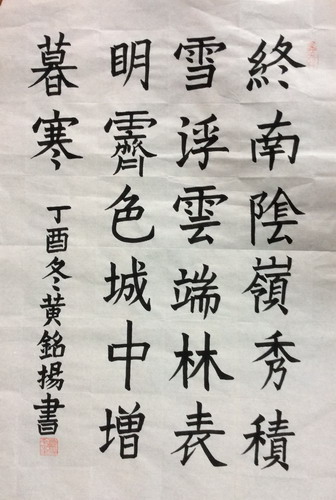 終南陰嶺秀積
雪浮雲端林表
明霽色城中增
暮寒
丁酉冬黄銘揚書